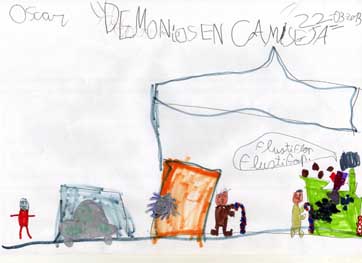 Oscar
"DEMONIOS EN CAMISETA"
22-03-2013
flustiflop
flustiflop!